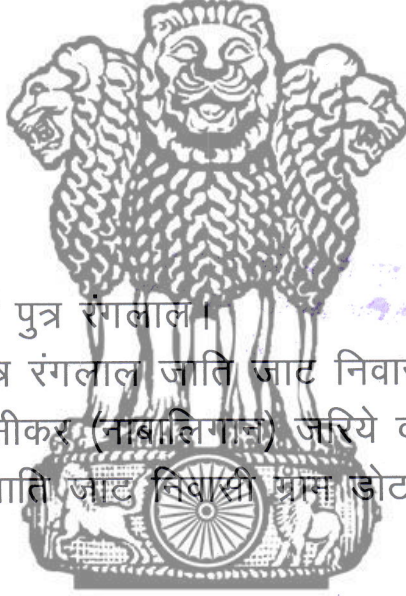 पुत्र रंगलाल।
त्र रंगलाल जाति जाट निवास
नीकर (नाबालिगान) जरिये व
जाति जाट निवासी ग्राम डोट